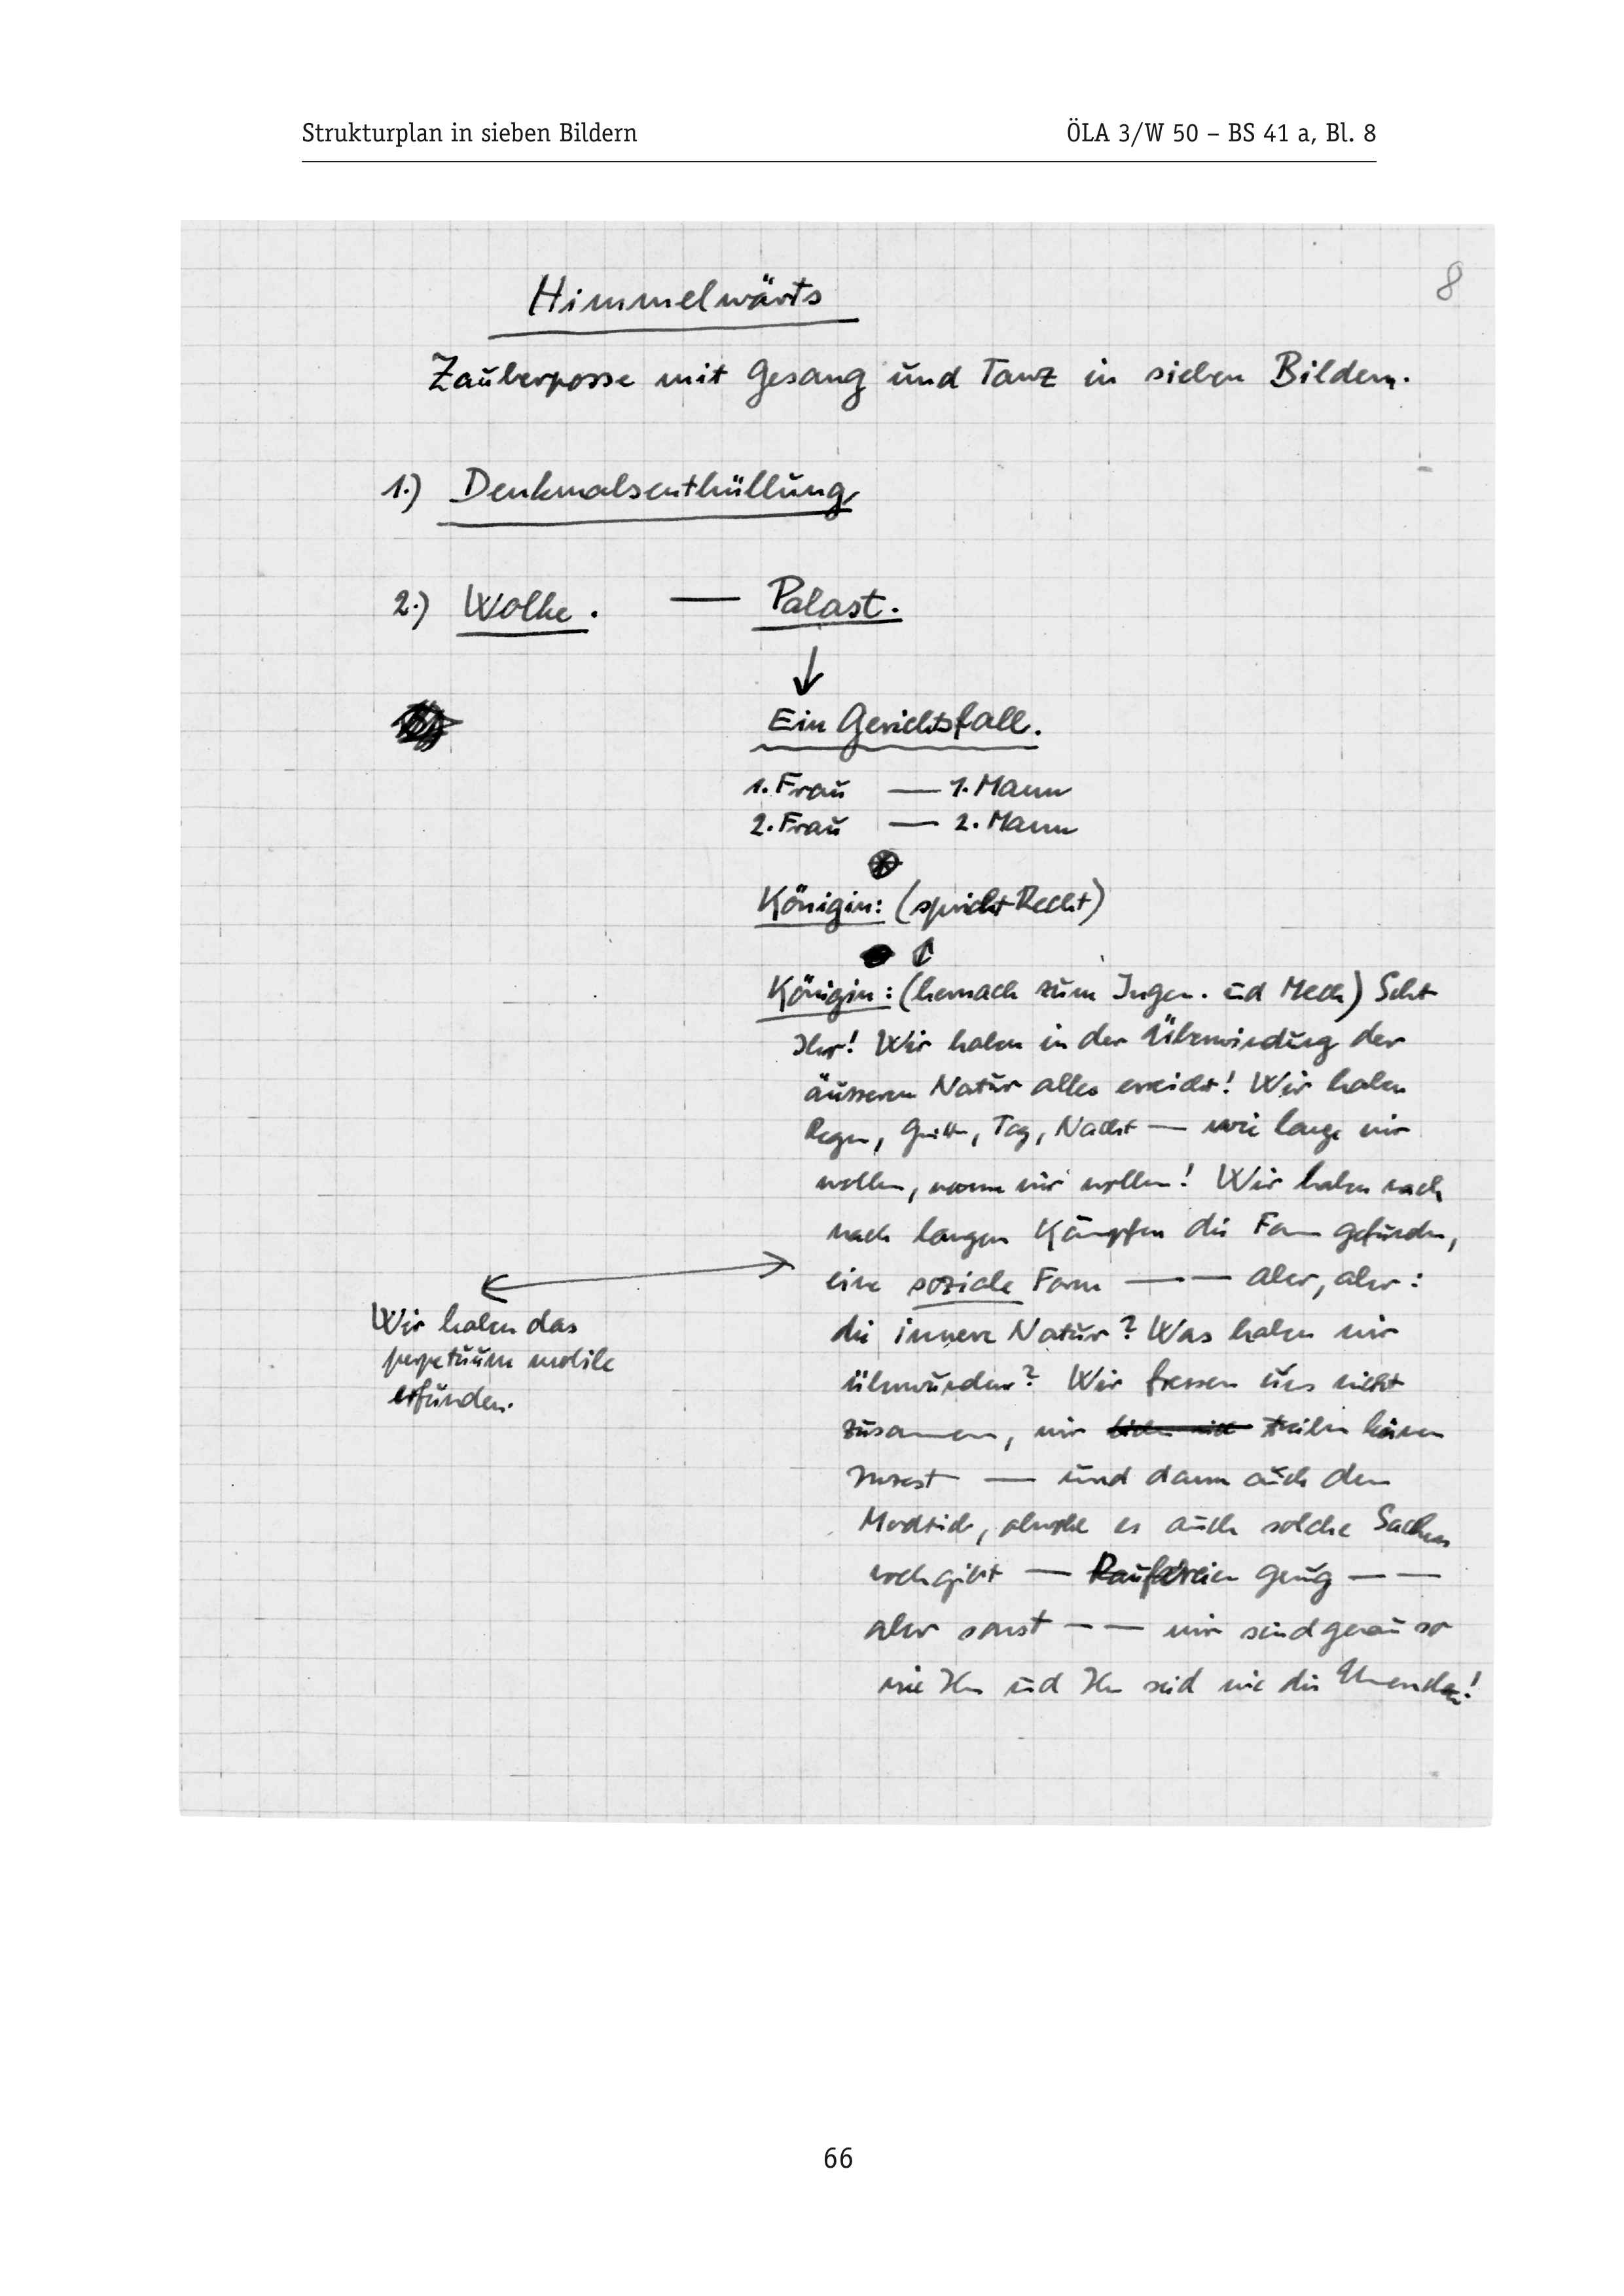 Strukturplan in sieben Bildern
ÖLA 3/W 50 – BS 41 a, Bl. 8
8
Himmelwärts
Zauberposse mit Gesang und Tanz in sieben Bildern.
1.) Denkmalsenthüllung
2.) Wolke. — Palast.
Ein Gerichtsfall.
1. Frau — 1. Mann
2. Frau — 2. Mann
Königin: (spricht Recht)
Königin: (hernach zum Ingen. und Mech) Seht
Ihr! Wir haben in der Überwindung der
äusseren Natur alles erreicht! Wir haben
Regen, Tag, Nacht — wie lange wir
wollen, wann wir wollen! Wir haben nach
nach langen Kämpfen die Form gefunden,
eine soziale Form — — aber, aber:
die innere Natur? Was haben wir
überwunden? Wir fressen uns nicht
zusammen, wir treiben keinen
Inzest — und dann auch den
Mord, obwohl es auch solche Sachen
noch gibt — Raufereien genug — —
aber sonst — — wir sind genau so
wie Ihr und Ihr seid wie die
Wir haben das
perpetuum mobile
erfunden.
66